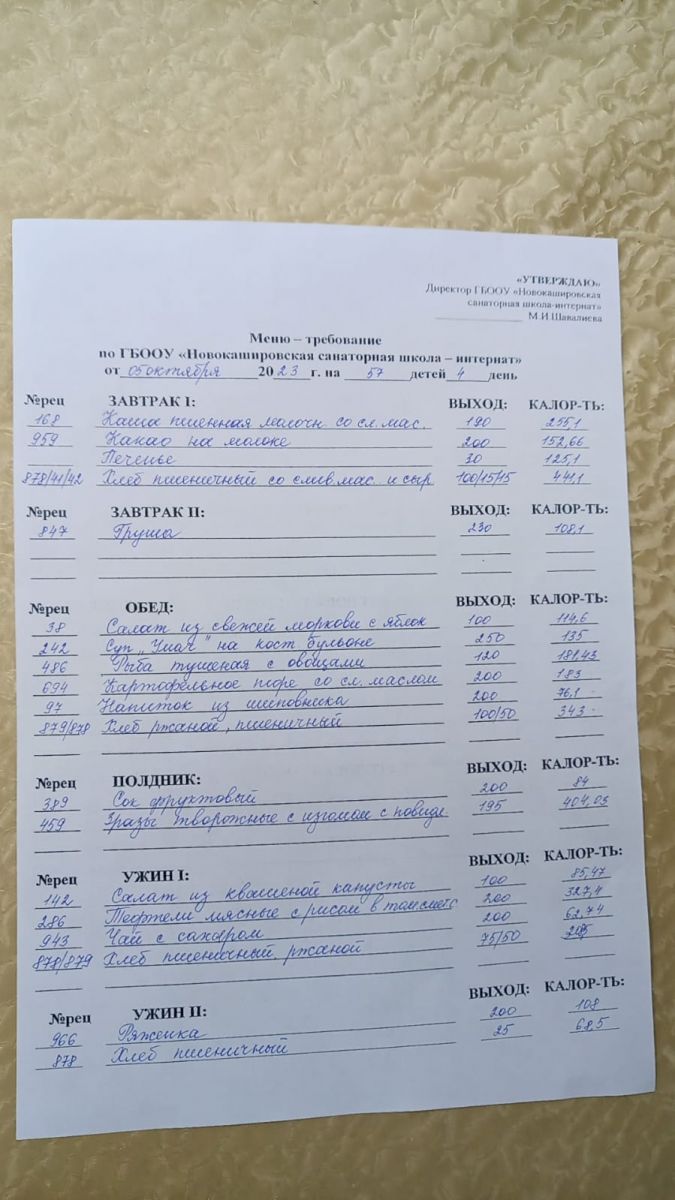 «УТВЕРЖДАЮ»
Директор ГБООУ «Новокашировская
санаторная школа-интернат»
М.И.Шавалиева
Меню – требование
по ГБООУ «Новокашировская санаторная школа – интернат»
от 05 октября 2023 г. на 57 детей 4 день
№рец ЗАВТРАК I: ВЫХОД: КАЛОР-ТЬ:
168 Каша пшенная молочн со сл. мас. 190 255,1
959 Какао на молоке 200 152,66
Печенье 30 125,1
878/41/42 Хлеб пшеничный со слив. мас. и сыр 100/15/15 441,1
№рец ЗАВТРАК II: ВЫХОД: КАЛОР-ТЬ:
847 Груша 230 108,1
№рец ОБЕД: ВЫХОД: КАЛОР-ТЬ:
38 Салат из свежей моркови с яблок 100 114,6
242 Суп „Умач" на кост бульоне 250 135
486 Рыба тушеная с овощами 120 181,43
694 Картофельное пюре со сл. маслом 200 183
97 Напиток из шиповника 200 76,1
879/878 Хлеб ржаной, пшеничный 100/50 343
№рец ПОЛДНИК: ВЫХОД: КАЛОР-ТЬ:
389 Сок фруктовый 200 84
459 Зразы творожные с изюмом с повидл 195 404,03
№рец УЖИН I: ВЫХОД: КАЛОР-ТЬ:
142 Салат из квашеной капусты 100 85,47
286 Тефтели мясные с рисом в том. смет 200 327,4
943 Чай с сахаром 200 62,74
878/879 Хлеб пшеничный ржаной 75/50
№рец УЖИН II: ВЫХОД: КАЛОР-ТЬ:
966 Ряженка 200 108
878 Хлеб пшеничный 25 68,5